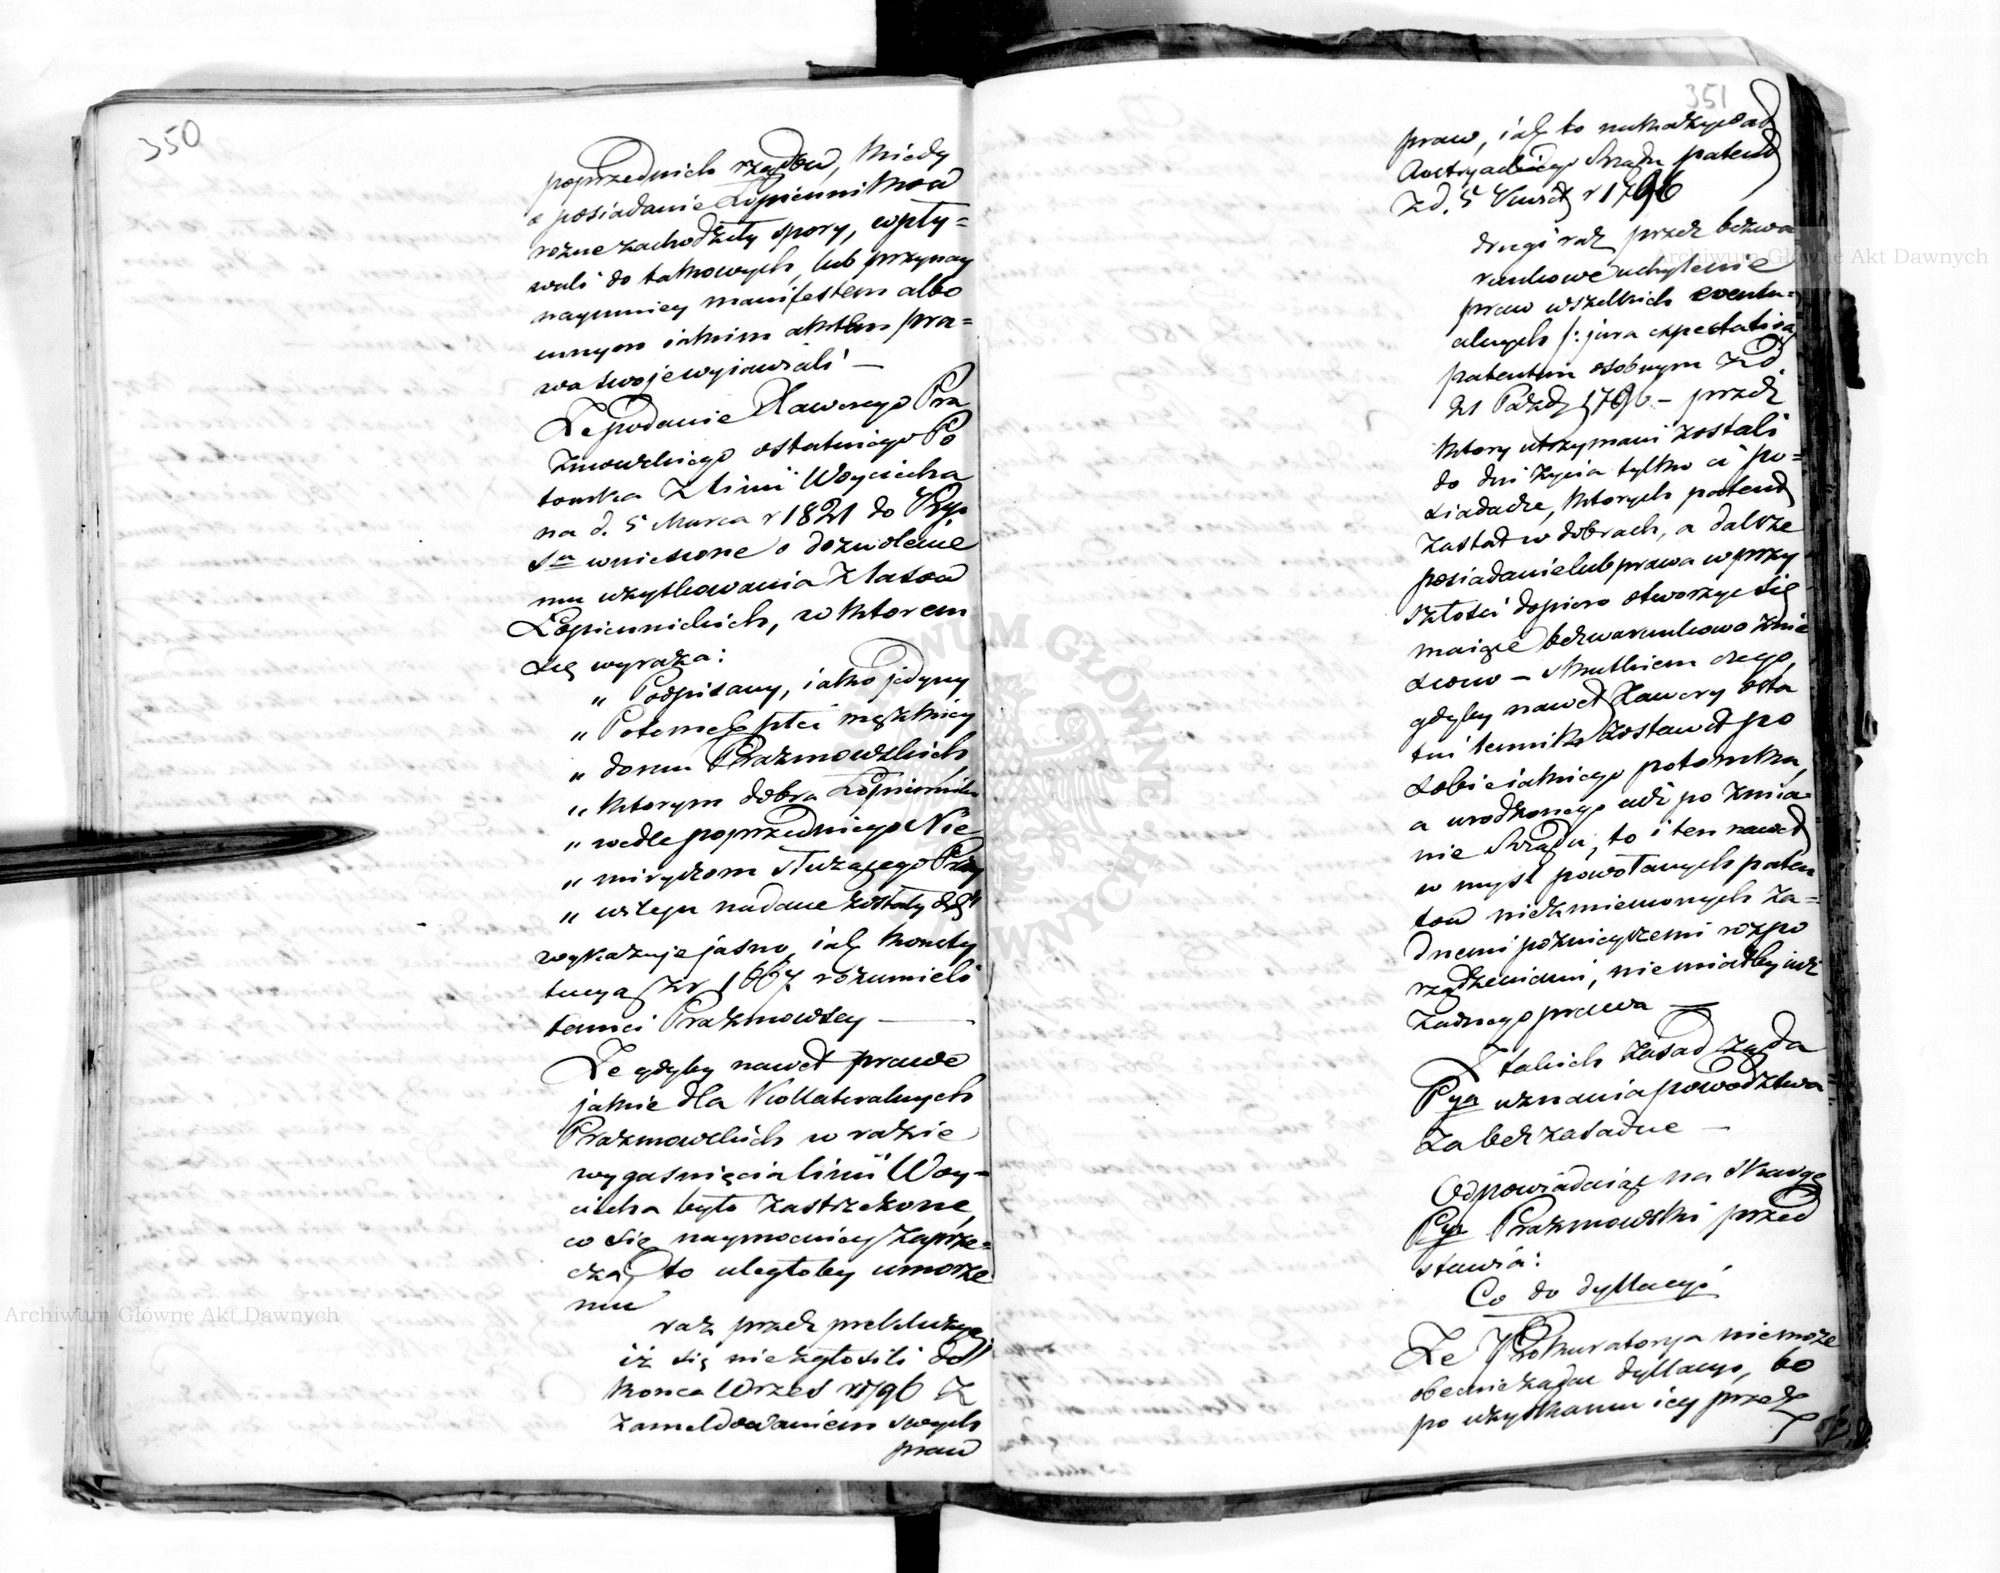 350
poprzednich rządów, kiedy
o posiadanie Łopiennikow
rożne zachodziły spory, wpły-
wali do takowych, lub przynay
naymniey manifestem albo
innym iakim aktem pra-
wa swoje wyiawiali —
Że podanie Xawerego Pra
żmowskiego ostatniego Po
tomka z linii Woyciecha
na d. 5 Marca r 1821 do
wniesione o dozwolenie
mu użytkowania z lasow
Łopiennickich, w ktorem
się wyraża:
" Podpisany, iako jedyny
" Potomek płci męzkiey
" domu Prażmowskich,
" ktorym dobra Łopiennik
" wedle poprzedniego Nie
" miryczom służącego Przy
" wileju nadane zostały
wykazuje jasno, iak konsty
tucyą zr 1667 rozumieli
tamci Prażmowscy —
Że gdyby nawet prawo
jakie dla Kollateralnych
Prażmowskich w razie
wygaśnięcia linii Woy-
ciecha było zastrzeżone,
co się naymocniey zaprze-
cza, to uległoby umorze
niu
raz przez prekluzyą,
iż się niezgłosili do
końca Wrześ r 1796 z
zameldowaniem swych
praw
351
praw, iak to nakazywał
Austryackiego Rządu patent
z d. 5 r 1796
drugi raz przez bezwa
runkowe uchylenie
praw wszelkich eventu-
alnych /: jura expectativa
patentem osobnym z d.
21 Paźdz 1796 — przez
ktory utrzymani zostali
do dni życia tylko ci po-
siadacze, ktorych patent
zastał w dobrach, a dalsze
posiadanie lub prawa w przy
szłości dopiero otworzyć się
maiące bezwarunkowo znie
siono — skutkiem czego,
gdyby nawet Xawery osta
tni lennik zostawił po
sobie iakiego potomka,
a urodzonego iuż po zmia-
nie Rządu, to i ten nawet
w myśl powołanych paten
tow niezmienionych ża-
dnemi poźnieyszemi rozpo
rządzeniami, nie miałby iuż
żadnego prawa —
Z takich zasad żąda
Pya uznania powodztwa
za bezzasadne —
Odpowiadaiąc na Skargę
Pya Prażmowski przed
stawia:
Co do dyllacyi
Że Prokuratorya niemoże
obecnie żądać dyllacyi, bo
po uzyskaniu iey przez